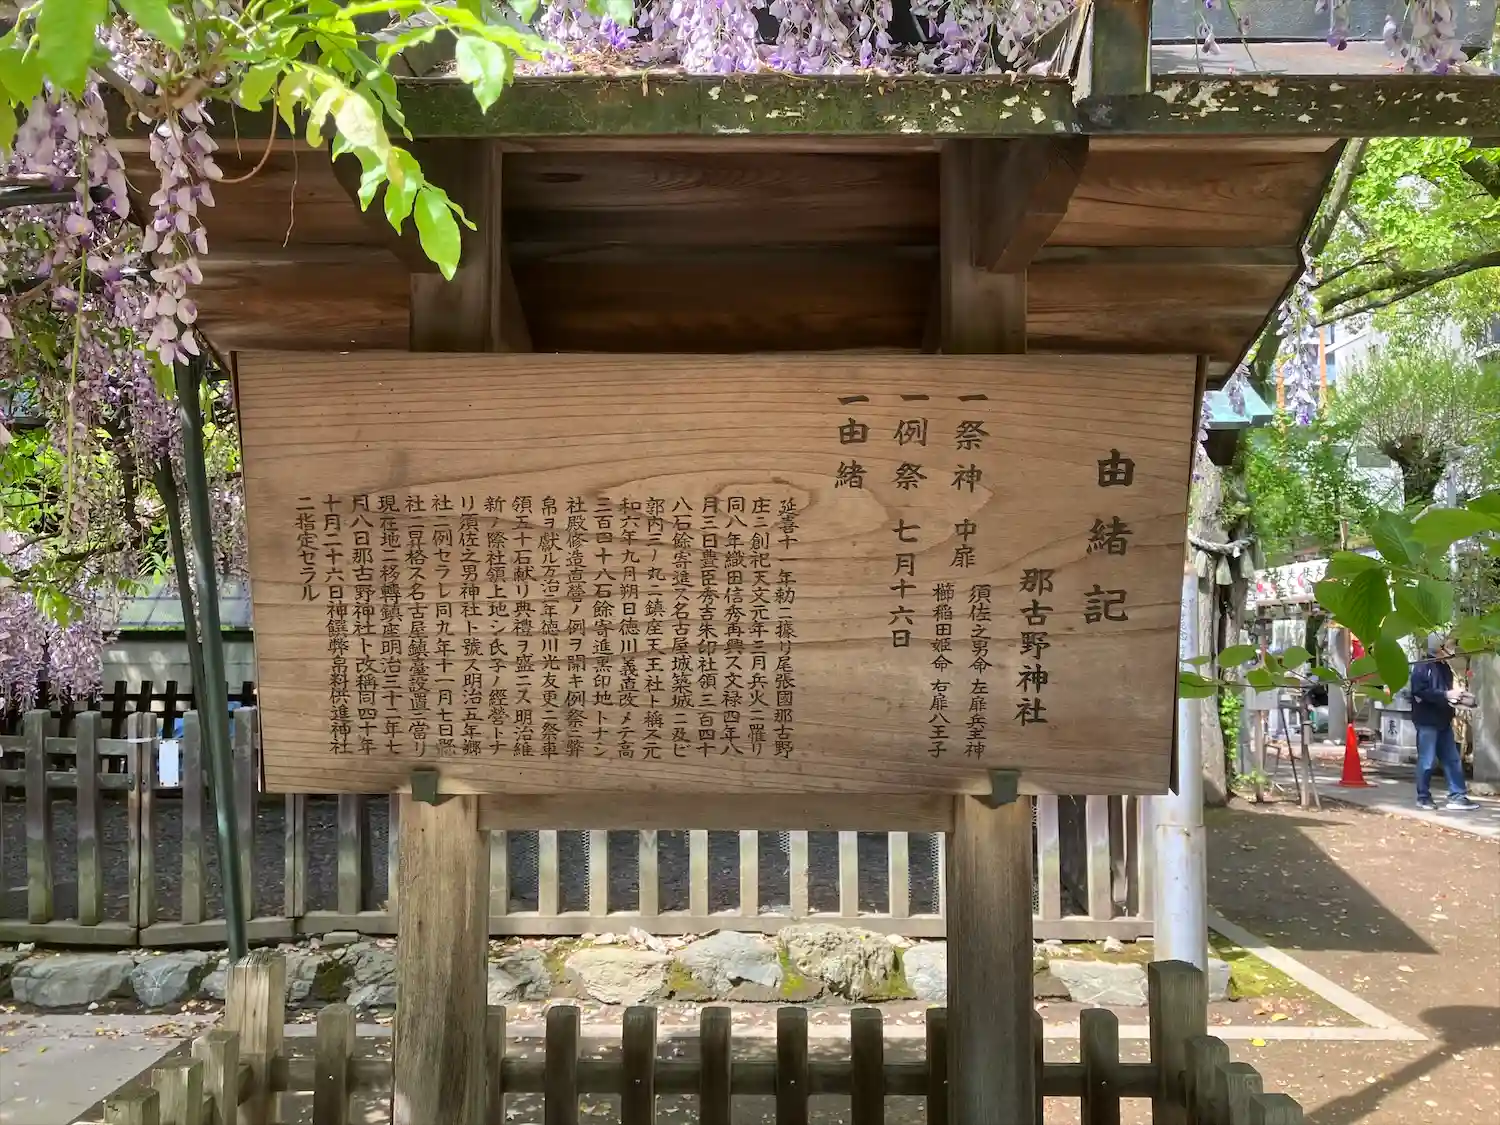 由緒記
那古野神社
一祭神 中扉 須佐之男命 左扉兵主神
櫛稲田姫命 右扉八王子
一例祭 七月十六日
一由緒
延喜十一年勅ニ據リ尾張國那古野
庄ニ創祀天文元年三月兵火ニ罹リ
同八年織田信秀再興ス文禄四年八
月三日豊臣秀吉朱印社領三百四十
八石餘寄進ス名古屋城築城ニ及ビ
郭内三ノ丸ニ鎮座天王社ト稱ス元
和六年九月朔日徳川義直改メテ高
三百四十八石餘寄進黒印地トナシ
社殿修造直營ノ例ヲ開キ例祭ニ幣
帛ヲ獻ル万治二年徳川光友更ニ祭車
領五十石献リ典禮ヲ盛ニス明治維
新ノ際社領上地シ氏子ノ經營トナ
リ須佐之男神社ト號ス明治五年郷
社ニ例セラレ同九年十一月七日縣
社ニ昇格ス名古屋鎮臺設置ニ當リ
現在地ニ移轉鎮座明治三十二年七
月八日那古野神社ト改稱同四十年
十月二十六日神饌幣帛料供進神社
ニ指定セラル